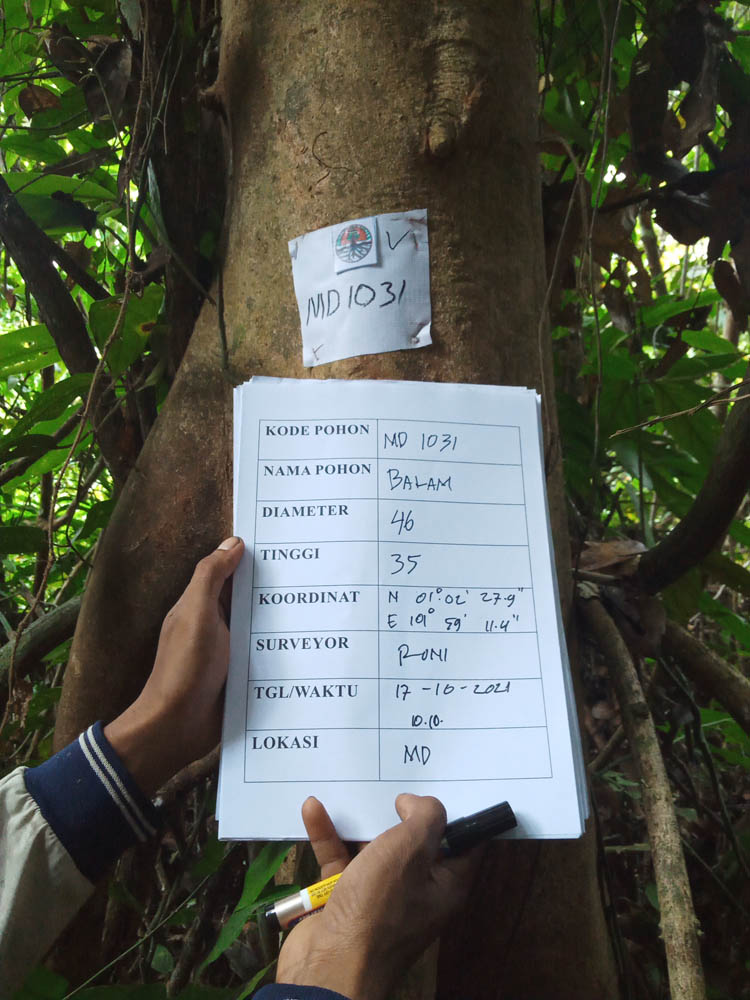 MD 1031
KODE POHON MD 1031
NAMA POHON BALAM
DIAMETER 46
TINGGI 35
KOORDINAT N 01° 02' 27.9"
E 101° 59' 11.4"
SURVEYOR RONI
TGL/WAKTU 17-10-2021
10.10
LOKASI MD